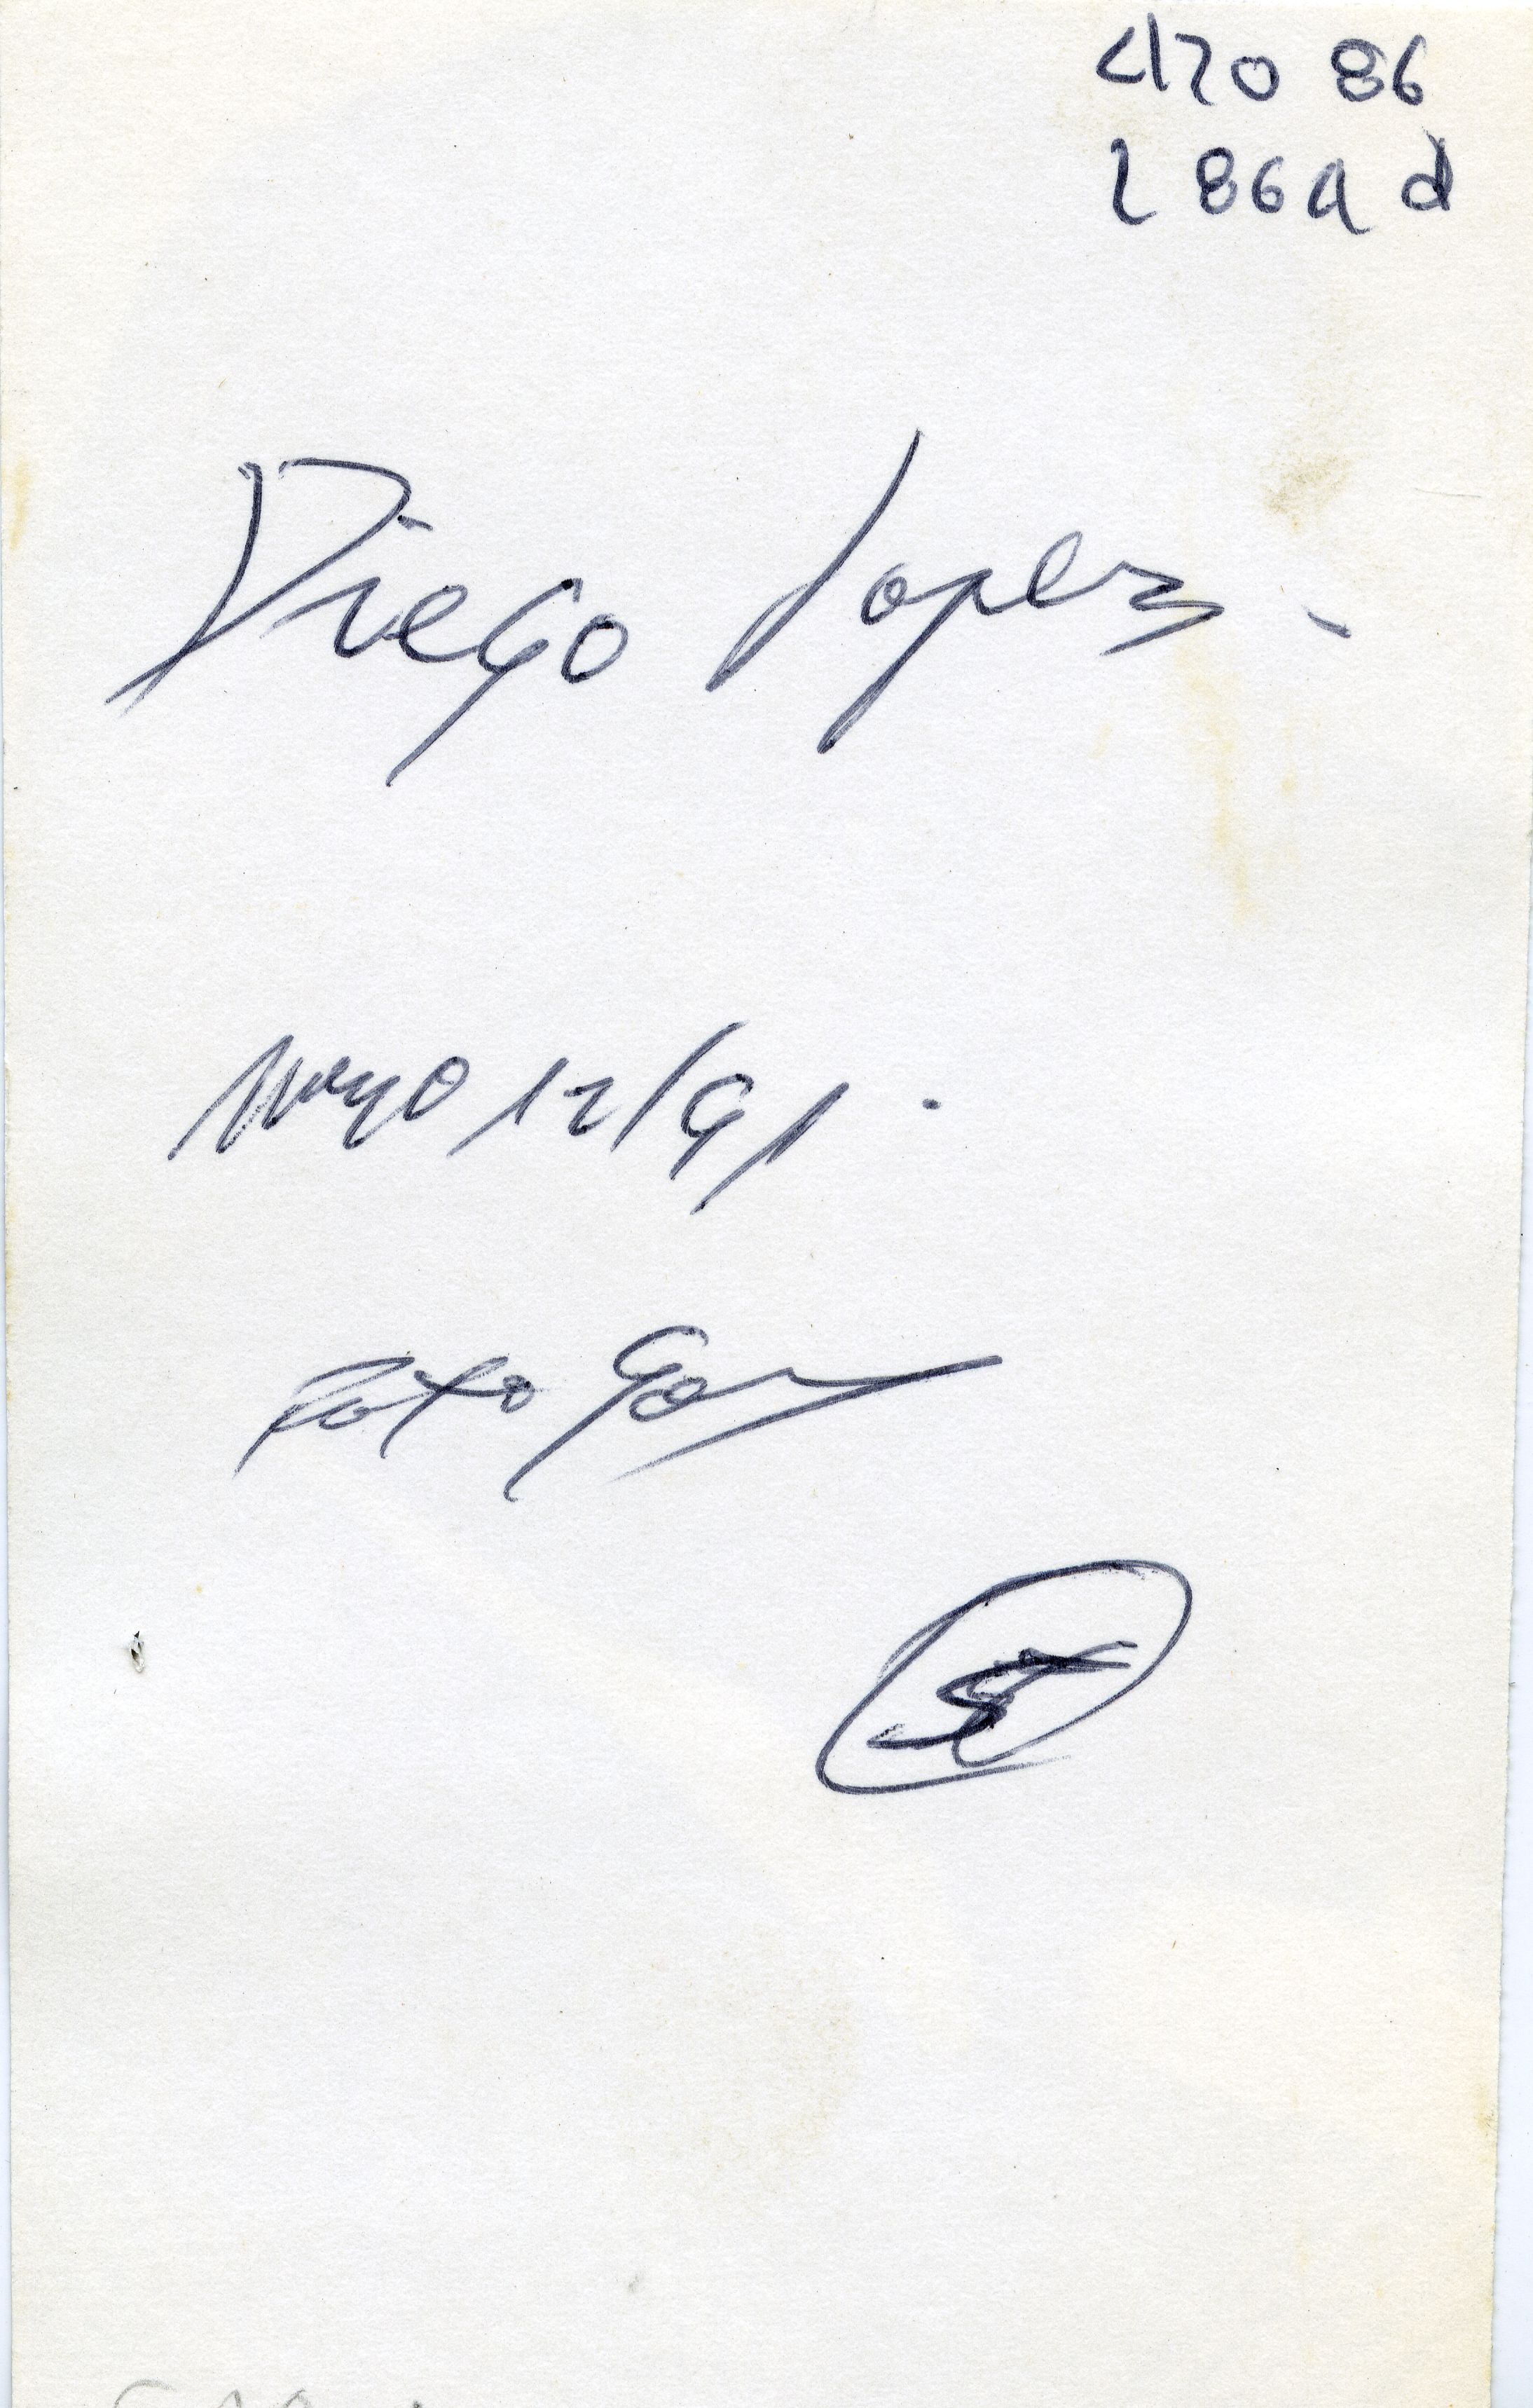 920 86
L 864 d
Diego Lopez
Mayo 12/91.
Foto Gar